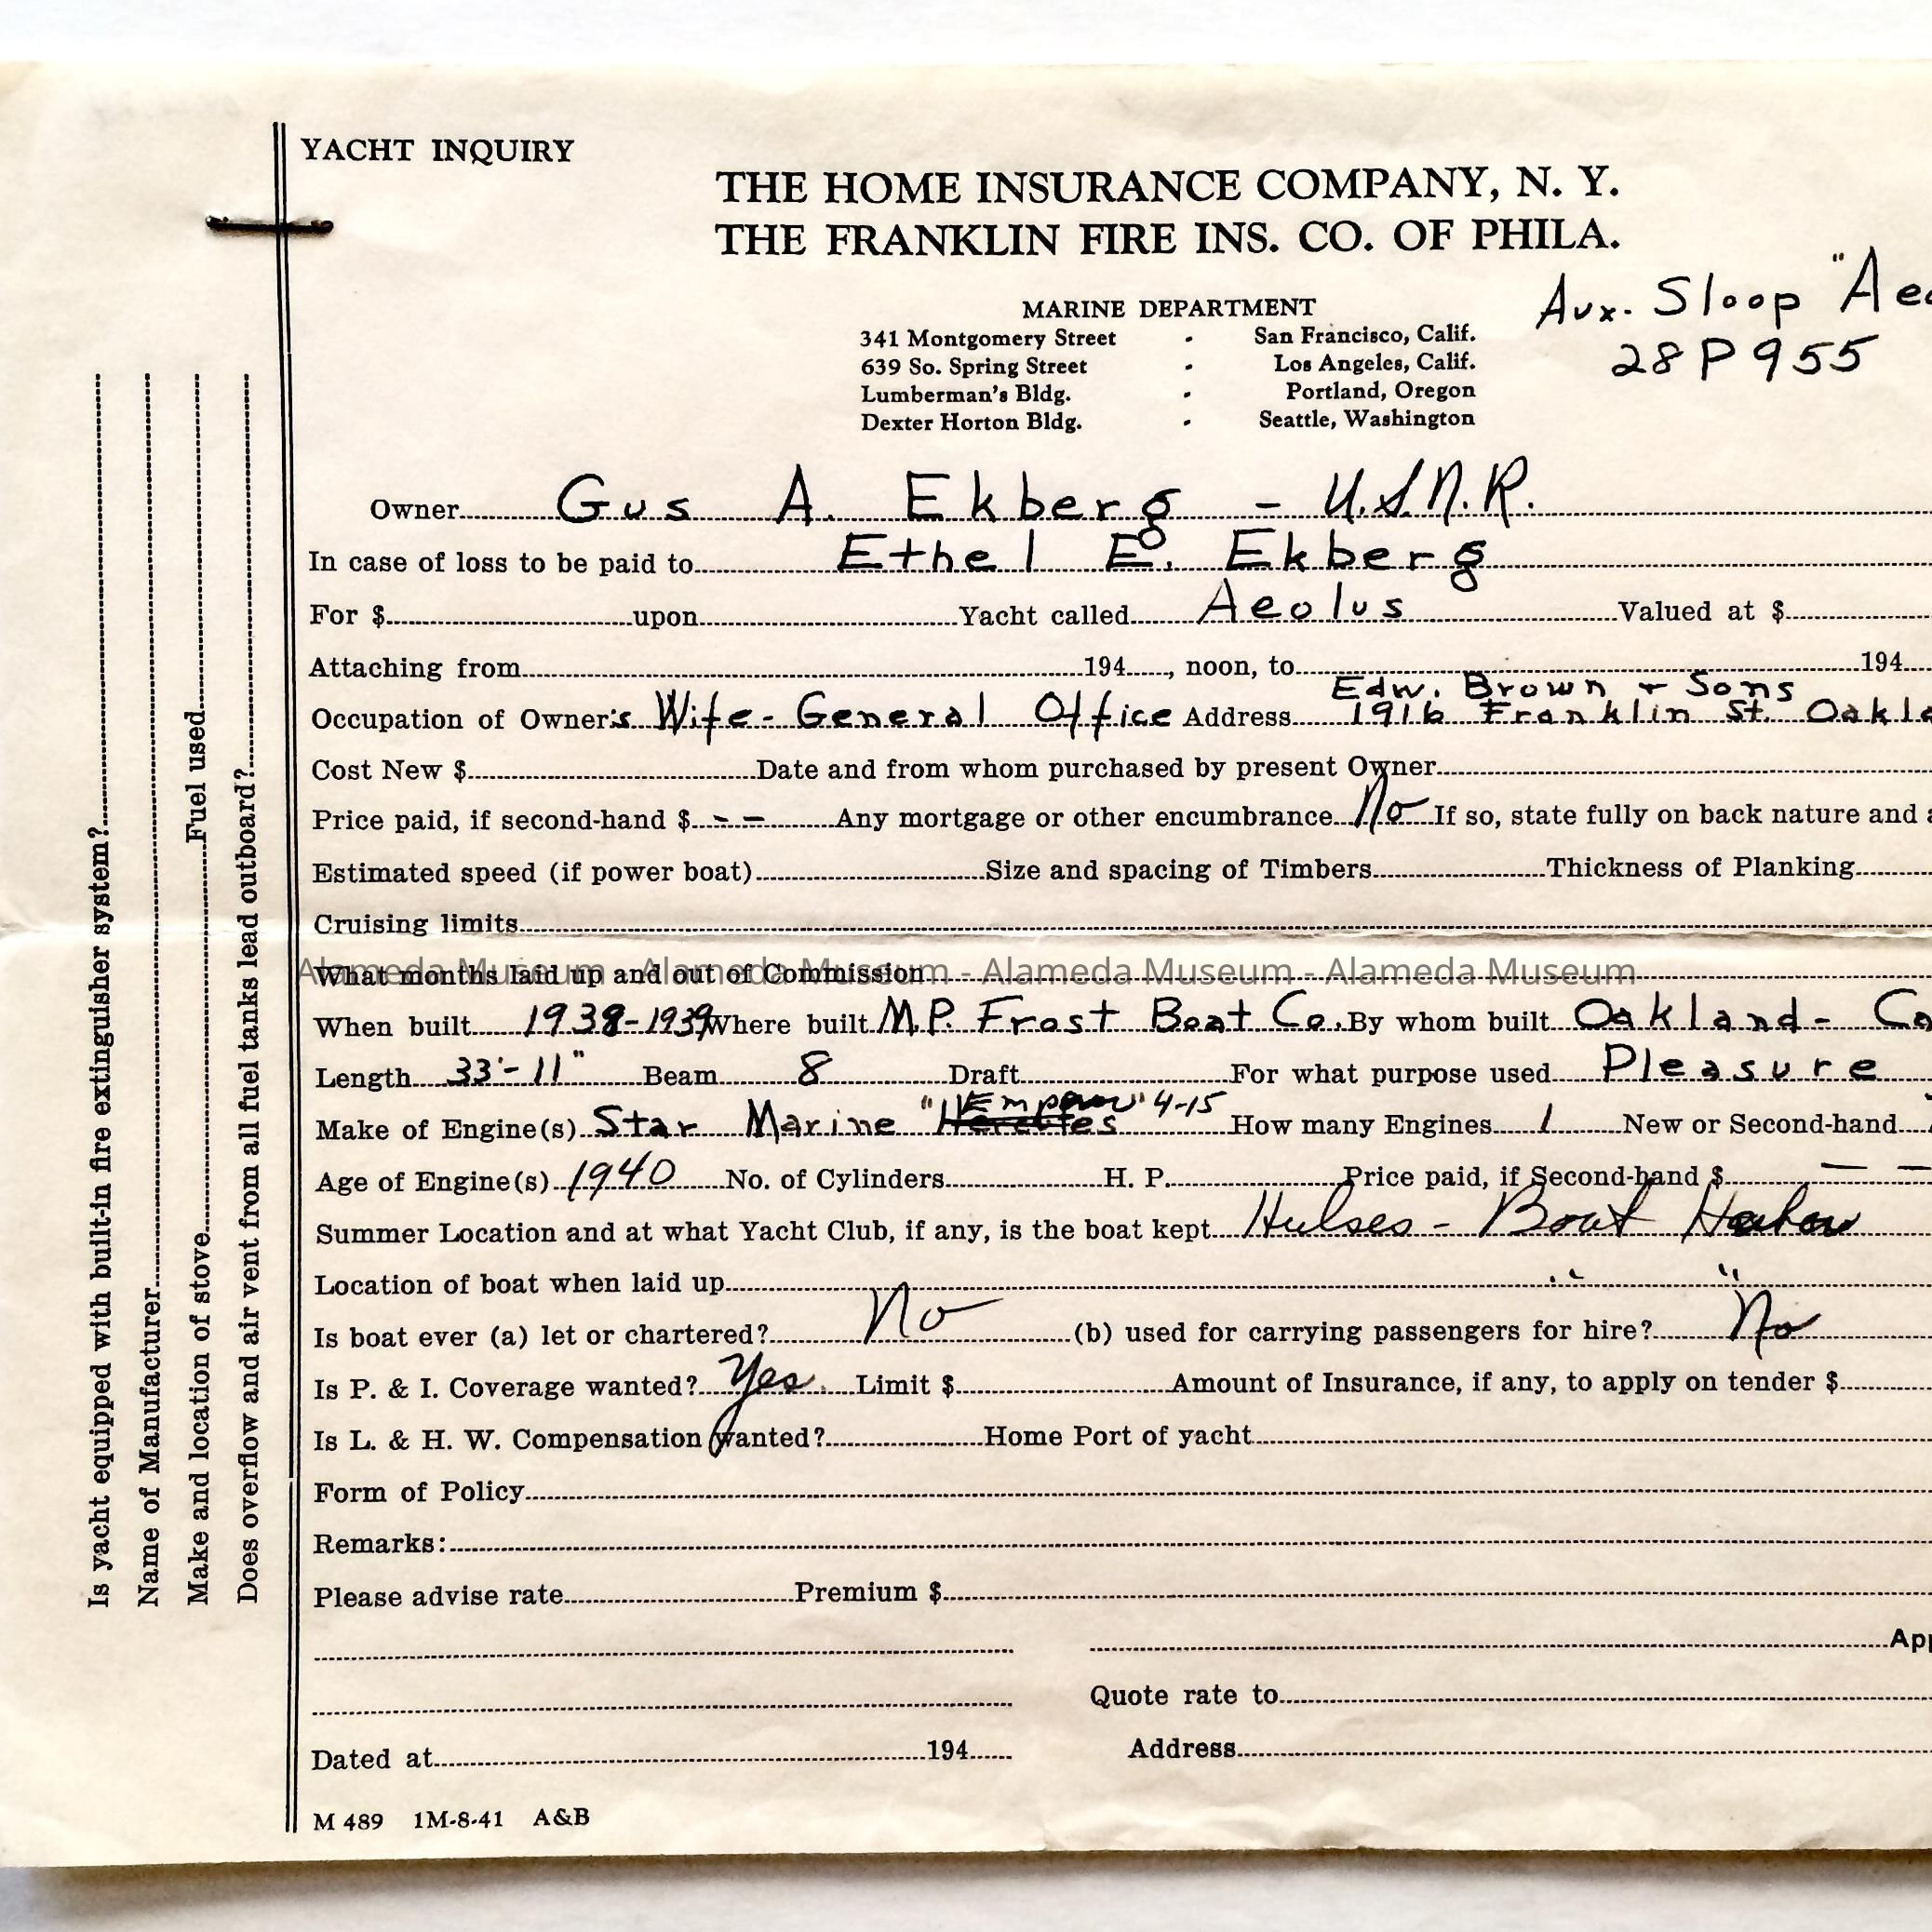 YACHT INQUIRY
THE HOME INSURANCE COMPANY, N. Y.
THE FRANKLIN FIRE INS. CO. OF PHILA.
MARINE DEPARTMENT
341 Montgomery Street - San Francisco, Calif.
639 So. Spring Street - Los Angeles, Calif.
Lumberman's Bldg. - Portland, Oregon
Dexter Horton Bldg. - Seattle, Washington
Aux. Sloop "Aeo
28P955
Owner Gus A. Ekberg - U.S.N.R.
In case of loss to be paid to Ethel E. Ekberg
For $ upon Yacht called Aeolus Valued at $
Attaching from 194 , noon, to 194
Edw. Brown + Sons
Occupation of Owner's Wife - General Office Address 1916 Franklin St. Oakla
Cost New $ Date and from whom purchased by present Owner
Price paid, if second-hand $ - - Any mortgage or other encumbrance No If so, state fully on back nature and a
Estimated speed (if power boat) Size and spacing of Timbers Thickness of Planking
Cruising limits
What months laid up and out of Commission
Alameda Museum - Alameda Museum - Alameda Museum - Alameda Museum
When built 1938-1939 Where built M.P. Frost Boat Co. By whom built Oakland - Ca
Length 33'-11" Beam 8 Draft For what purpose used Pleasure
Make of Engine(s) Star Marine " 4-15 How many Engines 1 New or Second-hand
Age of Engine(s) 1940 No. of Cylinders H. P. Price paid, if Second-hand $ — —
Summer Location and at what Yacht Club, if any, is the boat kept Hulses - Boat Harbor
Location of boat when laid up " "
Is boat ever (a) let or chartered? No (b) used for carrying passengers for hire? No
Is P. & I. Coverage wanted? Yes. Limit $ Amount of Insurance, if any, to apply on tender $
Is L. & H. W. Compensation wanted? Home Port of yacht
Form of Policy
Remarks:
Please advise rate Premium $
App
Quote rate to
Dated at 194 Address
M 489 1M-8-41 A&B
Is yacht equipped with built-in fire extinguisher system?
Name of Manufacturer
Make and location of stove Fuel used
Does overflow and air vent from all fuel tanks lead outboard?